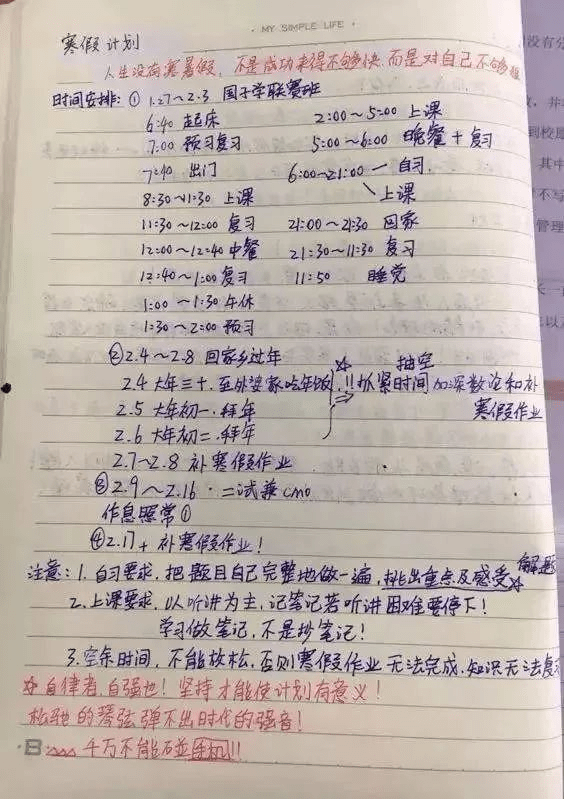 MY SIMPLE LIFE
寒假计划
人生没有寒暑假，不是成功来得不够快 而是对自己不够狠
时间安排：① 1.27～2.3 国子学联赛班
6:40 起床 2:00～5:00 上课
7:00 预习复习 5:00～6:00 晚餐＋复习
7:40 出门 6:00～21:00 自习
上课
8:30～11:30 上课
11:30～12:00 复习 21:00～21:30 回家
12:00～12:40 中餐 21:30～11:30 复习
12:40～1:00 复习 11:50 睡觉
1:00～1:30 午休
1:30～2:00 预习
② 2.4～2.8 回家乡过年
2.4 大年三十，至外婆家吃年饭 !! 抓紧时间 抽空 加深数论和补寒假作业
2.5 大年初一，拜年
2.6 大年初二，拜年
2.7～2.8 补寒假作业
③ 2.9～2.16 · 二试兼cmo
作息照常①
④ 2.17＋ 补寒假作业！
注意：1. 自习要求，把题目自己完整地做一遍，挑出重点及感受☆解题
2. 上课要求，以听讲为主，记笔记若听讲困难要停下！
学习做笔记，不是抄笔记！
3. 空余时间，不能放松，否则寒假作业无法完成，知识无法复
☆ 自律者，自强也！坚持才能使计划有意义！
松弛的琴弦弹不出时代的强音！
B 千万不能碰手机!!
没有分
并
到校
其中
不写
管理